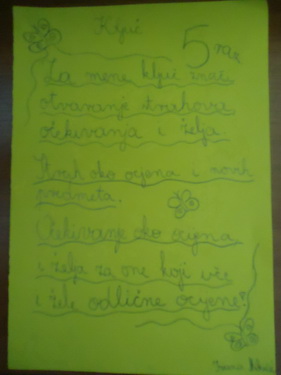 Ključ
5 raz
Za mene ključ znači
otvaranje strahova
očekivanja i želja
Strah oko ocjena i novih
predmeta.
Očekivanje oko ocjena
i želja za one koji uče
i žele odlične ocjene!